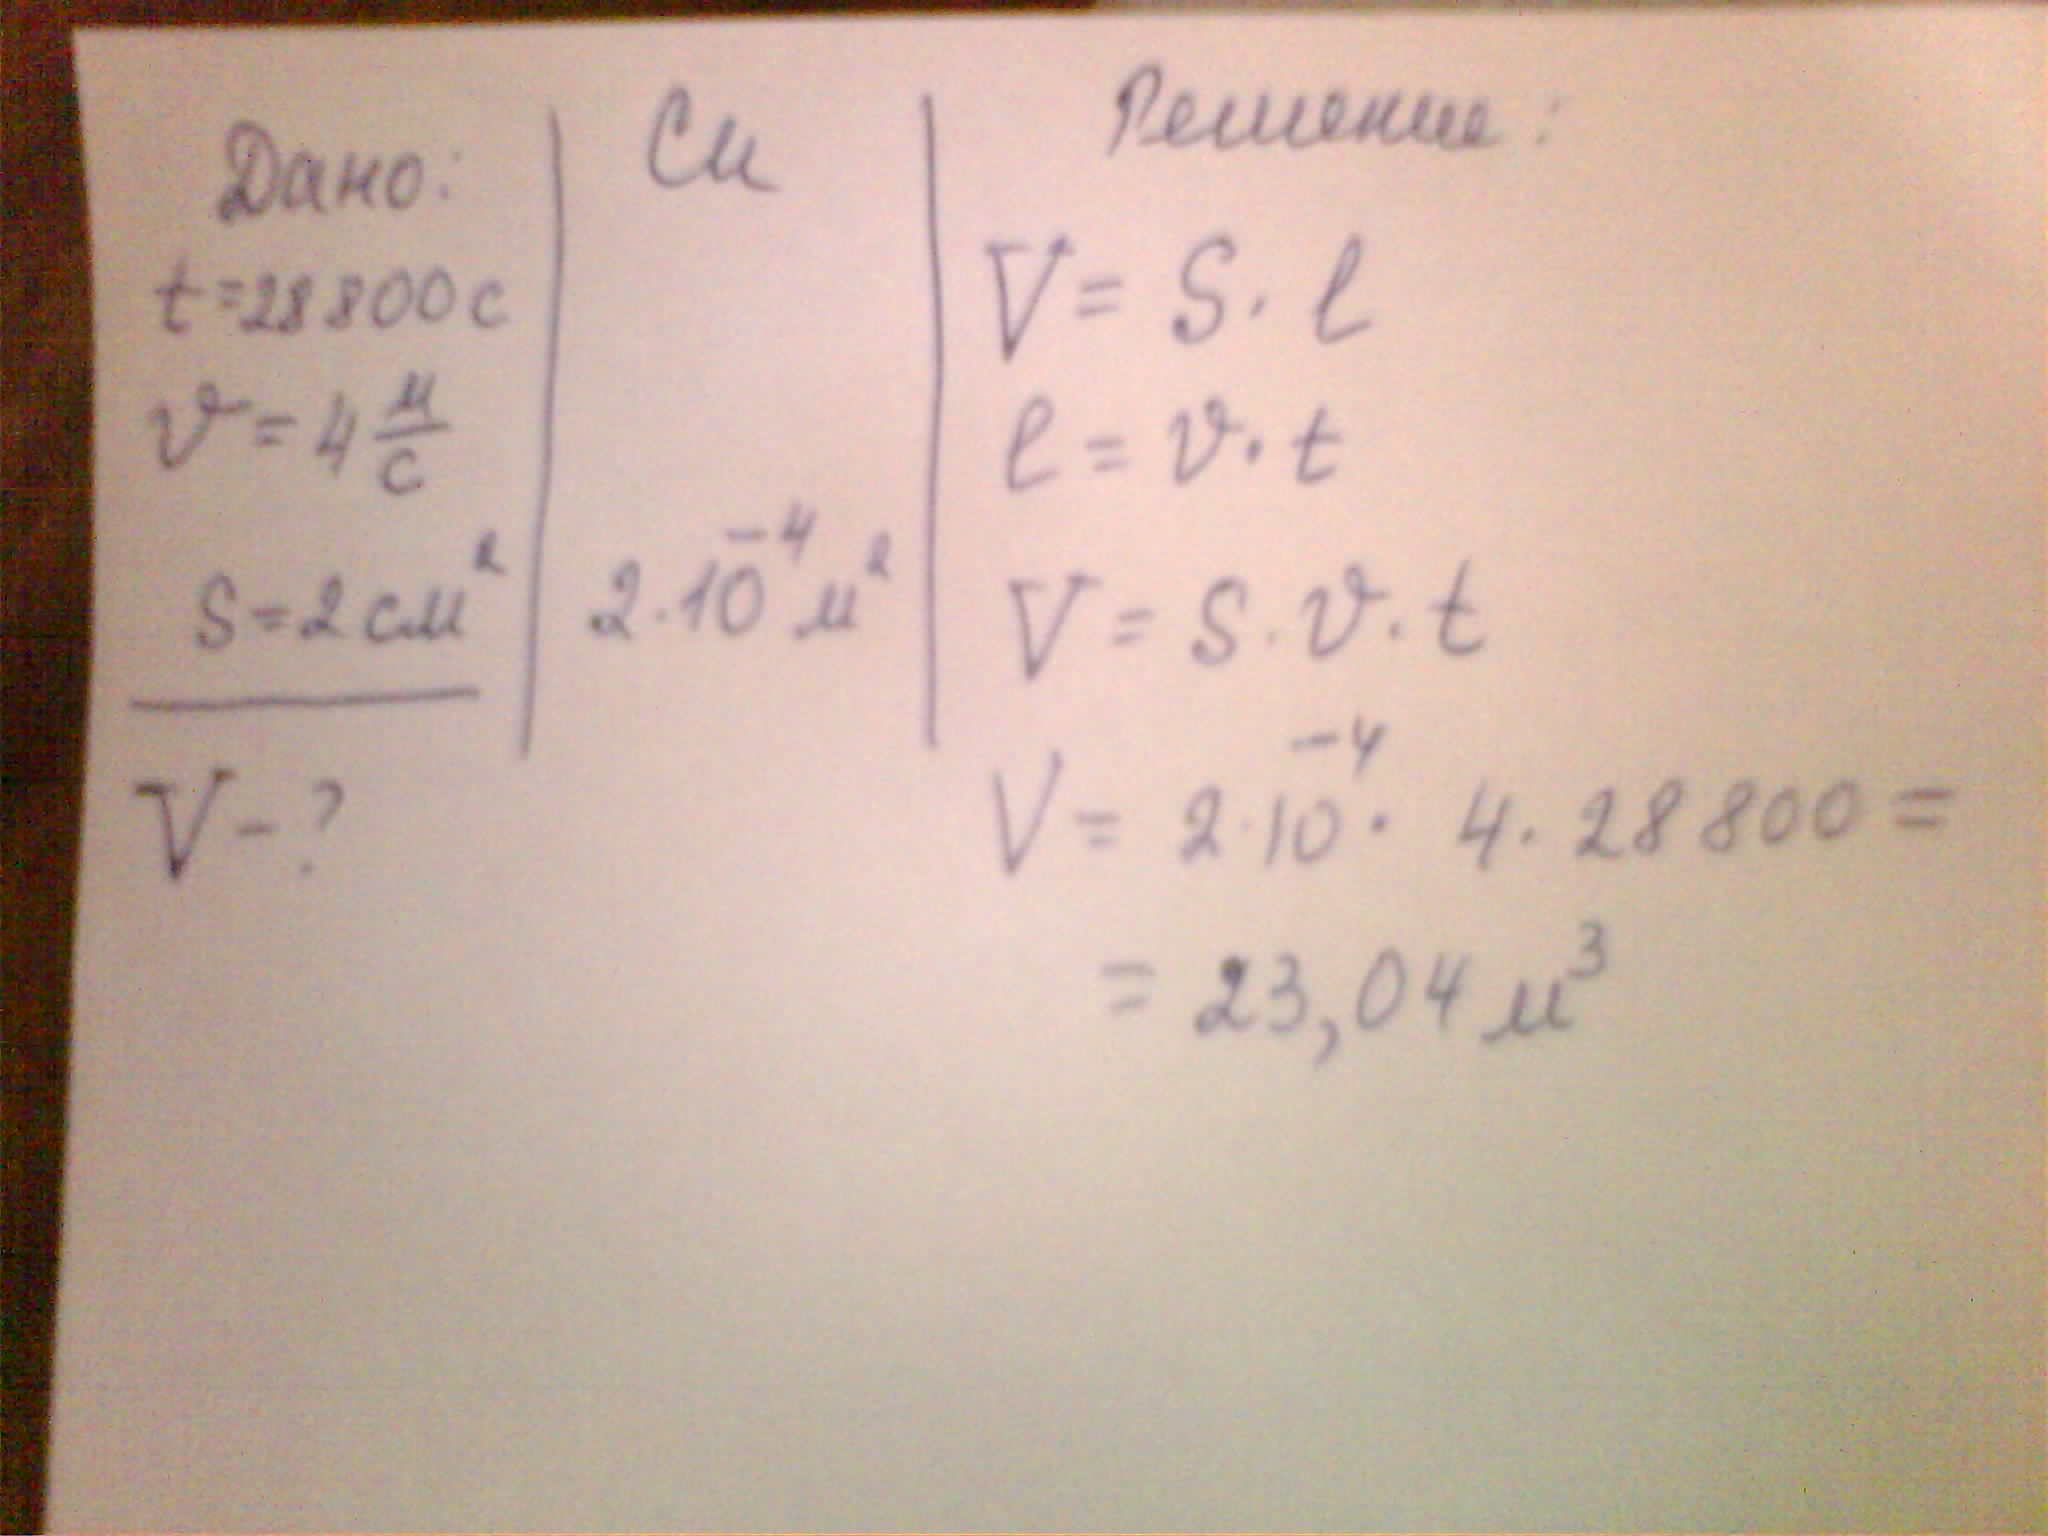 Дано:
t=28800с
υ=4 м/с
S=2см²
V-?
Си
2·10⁻⁴м²
Решение:
V= S·l
l=υ·t
V=S·υ·t
V= 2·10⁻⁴· 4·28800=
= 23,04 м³